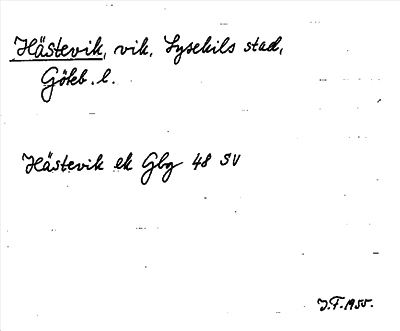 Hästevik, vik, Lysekils stad,
Göteb. l.
Hästevik ek Gbg 48 SV
J.F. 1955.